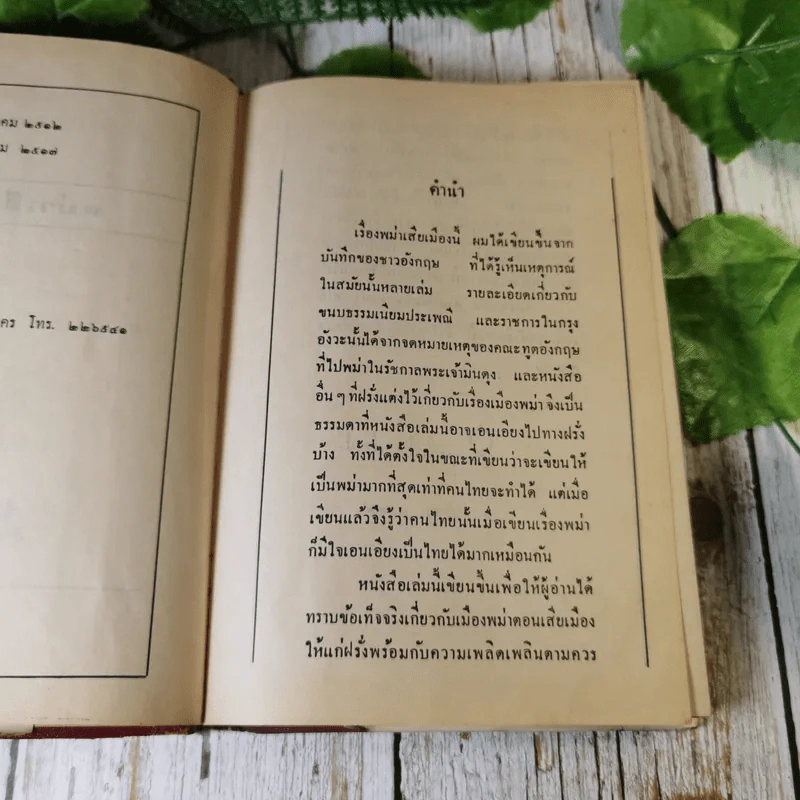 คม ๒๕๑๒
ม ๒๕๑๗
คร โทร. ๒๒๖๕๔๑
คำนำ
เรื่องพม่าเสียเมืองนี้ ผมได้เขียนขึ้นจาก
บันทึกของชาวอังกฤษ ที่ได้รู้เห็นเหตุการณ์
ในสมัยนั้นหลายเล่ม รายละเอียดเกี่ยวกับ
ขนบธรรมเนียมประเพณี และราชการในกรุง
อังวะนั้นได้จากจดหมายเหตุของคณะทูตอังกฤษ
ที่ไปพม่าในรัชกาลพระเจ้ามินดุง และหนังสือ
อื่น ๆ ที่ฝรั่งแต่งไว้เกี่ยวกับเรื่องเมืองพม่า จึงเป็น
ธรรมดาที่หนังสือเล่มนี้อาจเอนเอียงไปทางฝรั่ง
บ้าง ทั้งที่ได้ตั้งใจในขณะที่เขียนว่าจะเขียนให้
เป็นพม่ามากที่สุดเท่าที่คนไทยจะทำได้ แต่เมื่อ
เขียนแล้วจึงรู้ว่าคนไทยนั้นเมื่อเขียนเรื่องพม่า
ก็มีใจเอนเอียงเป็นไทยได้มากเหมือนกัน
หนังสือเล่มนี้เขียนขึ้นเพื่อให้ผู้อ่านได้
ทราบข้อเท็จจริงเกี่ยวกับเมืองพม่าตอนเสียเมือง
ให้แก่ฝรั่งพร้อมกับความเพลิดเพลินตามควร